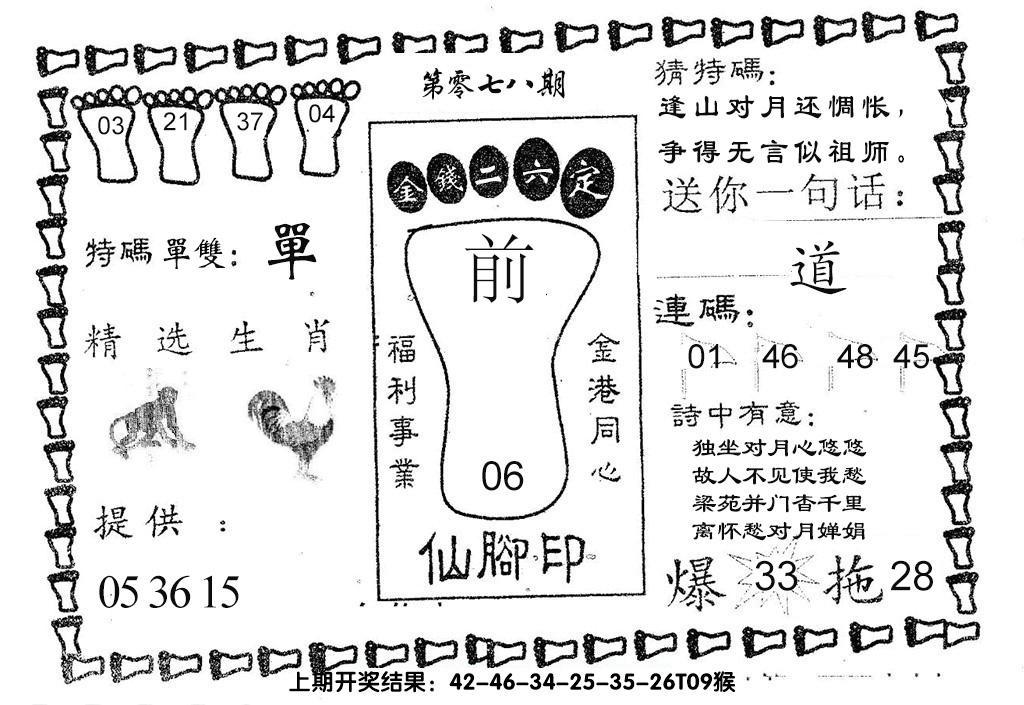 第零七八期
03 21 37 04
特碼單雙：單
精选生肖
提供：
05 36 15
金錢二六定
前
福利事業
金港同心
06
仙腳印
猜特碼：
逢山对月还惆怅，
争得无言似祖师。
送你一句话：
道
連碼：
01 46 48 45
詩中有意：
独坐对月心悠悠
故人不见使我愁
梁苑并门杳千里
离怀愁对月婵娟
爆 33 拖 28
上期开奖结果：42-46-34-25-35-26T09猴